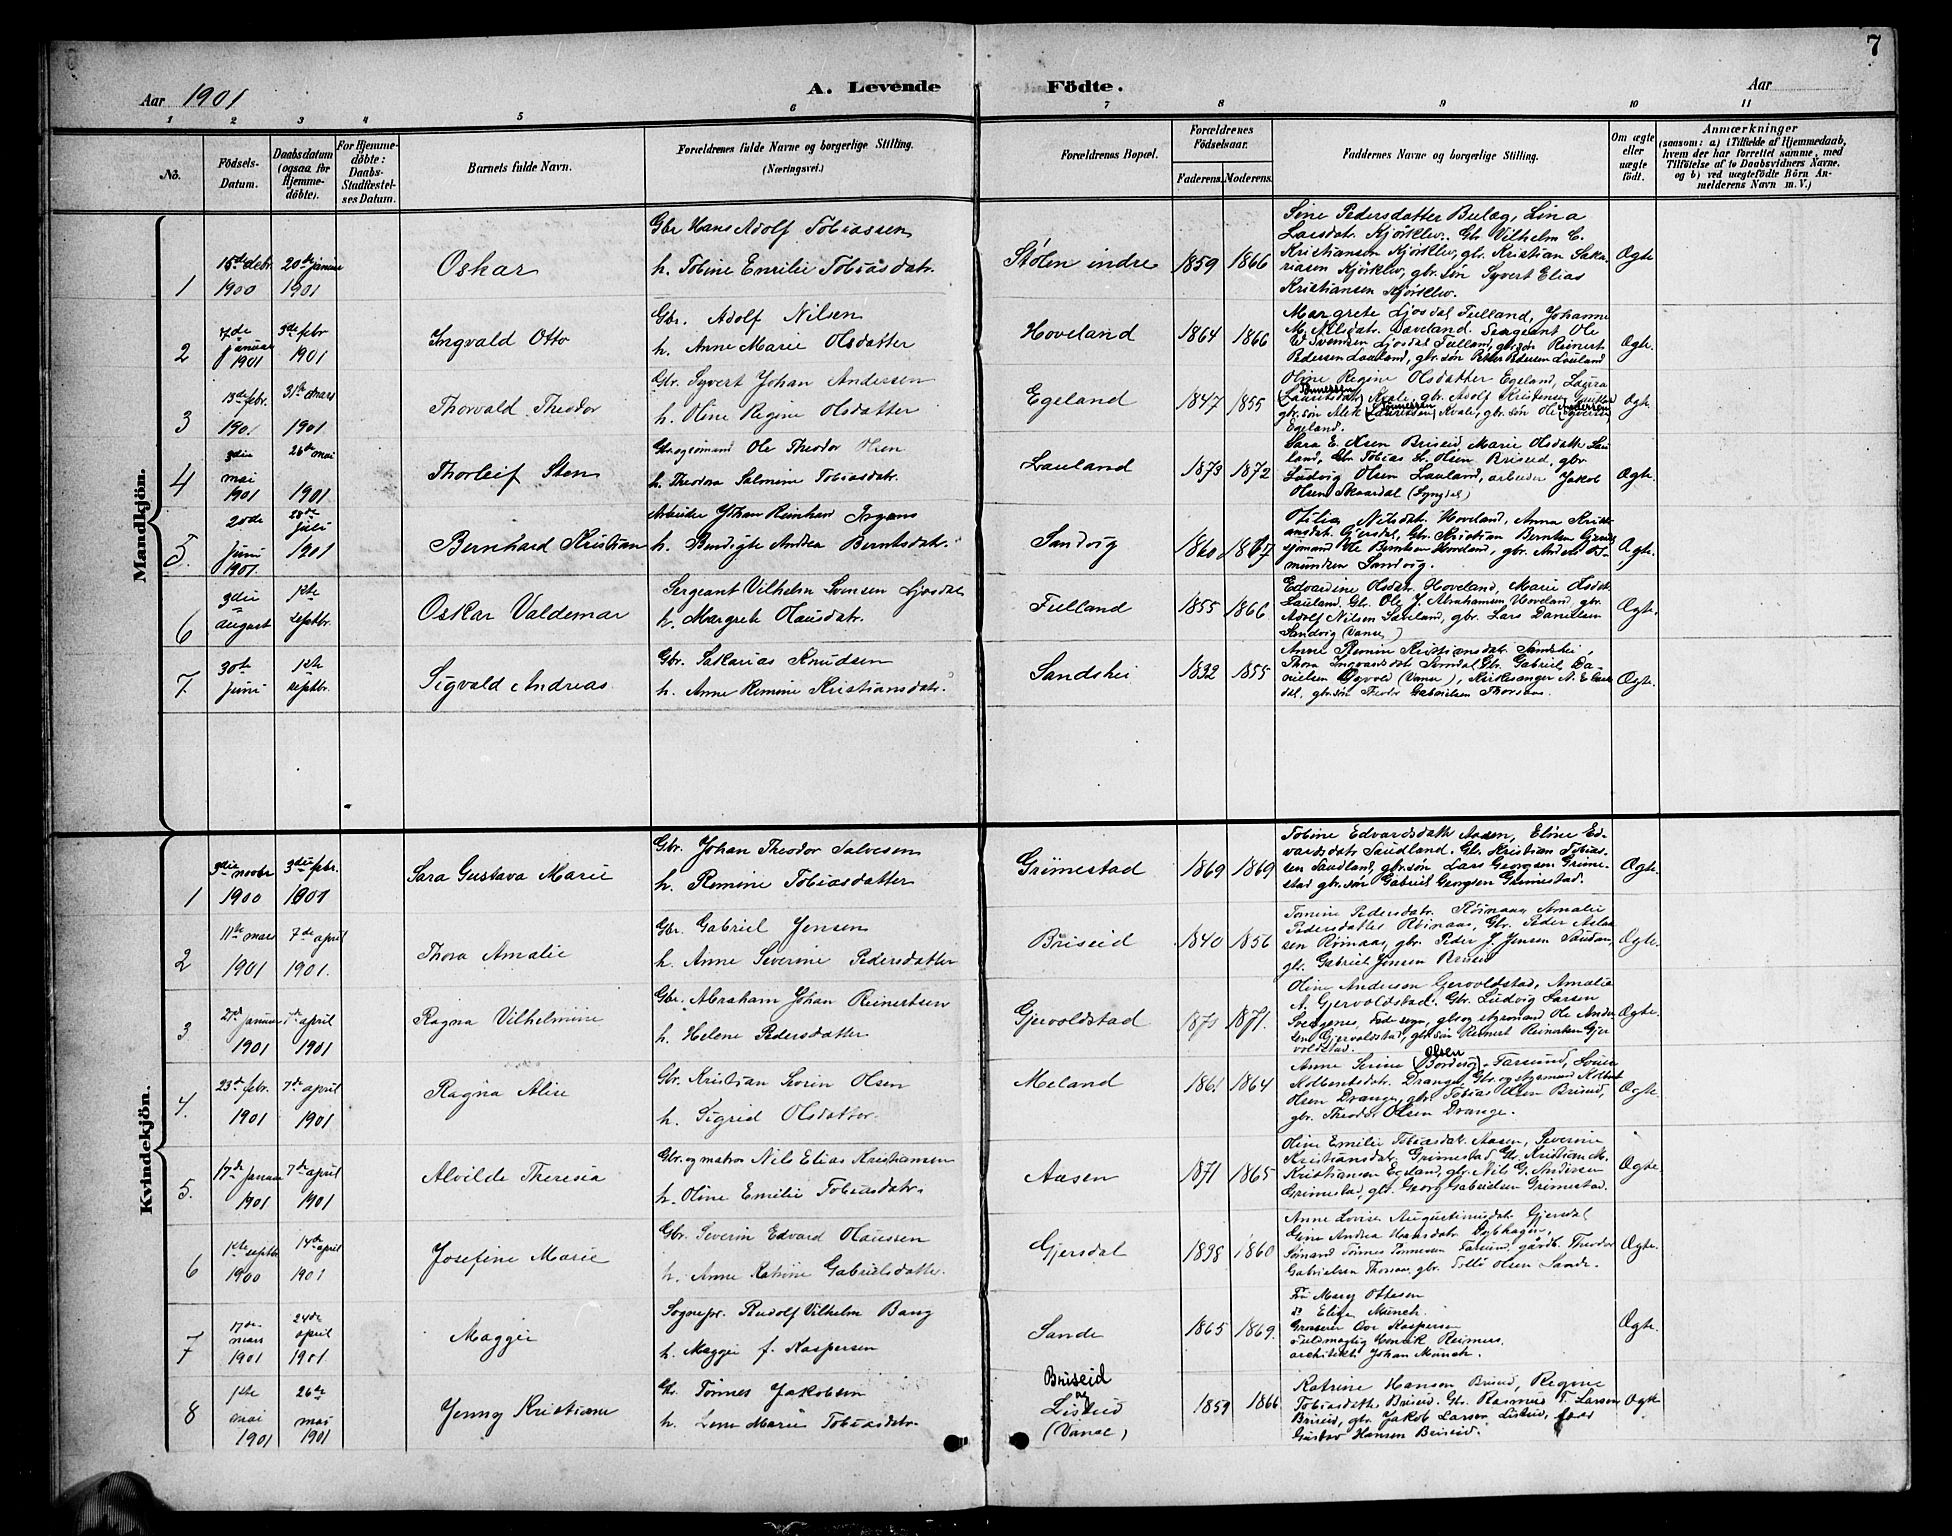 7
Aar 1901
A. Levende Födte.
Aar
1 2 3 4 5 6 7 8 9 10 11
No.
Födsels-Datum.
Daabsdatum (ogsaa for Hjemmedöbte).
For Hjemmedöbte: Daabs-Stadfæstelses Datum.
Barnets fulde Navn.
Forældrenes fulde Navne og borgerlige Stilling.
(Næringsvei.)
Forældrenes Bopæl.
Forældrenes Födselsaar.
Faderens. Moderens.
Faddernes Navne og borgerlige Stilling.
Om ægte eller uægte födt.
Anmærkninger
(saasom: a) i Tilfælde af Hjemmedaab, hvem der har forrettet samme, med Tilföielse af to Daabsvidners Navne, og b) ved uægtefödte Börn Anmelderens Navn m. V.)
Mandkjön.
1 15de debr. 1900 20de januar 1901 Oskar
Gbr Hans Adolf Tobiassen
h. Tobine Emilie Tobiasdatr.
Stölen indre 1859 1866
Sine Pedersdatter Bulæg, Lina
Larsdatr. Kjörklev, Gbr Vilhelm C.
Kristiansen Kjörklev, gbr. Kristian Saka-
riasen Kjörklev, gbr. søn Syvert Elias
Kristiansen Kjörklev.
Ægte
2 7de januar 1901 3de febr 1901 Ingvald Otto
Gbr. Adolf Nilsen
h. Anne Marie Olsdatter
Hoveland 1864 1866
Margrete Ljosdal Fulland, Johanne
M. Nilsdatr. Daveland. Sergeant Ole
V. Svensen Ljosdal Fulland, gbr. søn Reinert
Pedersen Lauland, gbr. søn Peder Pedersen Lauland
Ægte.
3 13de febr. 1901 31te mars 1901 Thorvald Theodor
Gbr. Syvert Johan Andersen
h. Oline Regine Olsdatter
Egeland 1847 1855
Oline Regine Olsdatter Egeland, Laura
Kvale, gbr. Adolf Kristensen
gbr. søn Alek Kvale, gbr. søn Ole
Egeland.
Ægte.
4 3die mai 1901 26de mai 1901 Thorleif Sten
Gbr. og sömand Ole Theodor Olsen
h. Theodora Salmine Tobiasdatr.
Lauland 1873 1872
Sara E. Olsen Briseid, Marie Olsdatr Lau-
land, Gbr Tobias Olsen Briseid, gbr
Ludvig Olsen Lauland, arbeider Jakob
Olsen Skaardal (Lyngdal)
Ægte.
5. 20de juni 1901. 28de juli 1901 Bernhard Kristian
Arbeider Johan Reinhard
h. Bendigte Andrea Berntsdatr.
Sandvig 1860 1867
Otilia Nilsdatr. Hoveland, Anna Krist-
iansdatr. Gjersdal, Gbr. Kristian Berntsen
sjömand Ole Berntsen Hoveland, gbr. Anders
mundsen Sandvig.
Ægte.
6 3die august 1ste septbr. Oskar Valdemar
Sergeant Vilhelm Svensen Ljosdal
h. Margrete Hansdatr.
Fulland 1855 1866
Edvardine Olsdatr. Hoveland, Marie Olsdatr.
Lauland. Gbr. Ole J. Abrahamsen Hoveland, gbr.
Adolf Nilsen Haveland, gbr. Lars Danielsen
Sandvig (Vanse)
Ægte.
7. 30te juni 1ste septbr. Sigvald Andreas.
Gbr. Sakarias Knudsen
h. Anne Remine Kristiansdatr.
Sandshei 1832 1855
Anne Remine Kristiansdatr. Sandshei,
Thora Ingvardsdatr Gbr. Gabriel Da-
nielsen (Vanse), Kirkesanger
gbr. søn Theodor Gabrielsen Thorsaas.
Ægte.
Kvindekjön.
1 3die novbr 1900 3die febr. 1901 Sara Gustava Marie
Gbr. Johan Theodor Salvesen
h. Remine Tobiasdatter
Grimestad 1869 1869
Tobine Edvardsdatr Aasen, Eline Ed-
vardsdatr Saudland. Gbr. Kristian Tobias-
sen Saudland, gbr. søn Lars Georgsen Grime-
stad gbr. søn Gabriel Georgsen Grimestad.
Ægte.
2 11te mars 1901 7de april 1901. Thora Amalie
Gbr. Gabriel Jensen
h. Anne Severine Pedersdatter
Briseid 1840 1856
Tomine Pedersdatr. Röinaas, Amalie
Pedersdatter Röinaas, Gbr. Peder Aslak-
sen Röinaas, gbr. Peder J. Jensen
gbr. Gabriel Jensen Briseid
Ægte.
3 21de Januar 1901 april 1901 Ragna Vilhelmine
Gbr. Abraham Johan Reinertsen
h. Helene Pedersdatter
Gjervoldstad 1871 1871.
Oline Andersen Gjervoldstad, Amalie
A. Gjervoldstad. Gbr. Ludvig Larsen
Svergenes, Fede sogn, gbr. og styrmand Ole Ander-
sen Gjervoldstad, gbr. søn Reinert Reinertsen Gjer-
voldstad.
Ægte.
4. 23de febr. 1901 7de april 1901 Ragna Alise
Gbr. Kristian Sorin Olsen
h. Sigrid Olsdatter.
Meland 1861 1864
Anne Serine Olsen Farsund, Lovise
Kolbentsdatr. Drange, Gbr. og styrmand Kolbent
Olsen Drange, gbr. Tobias Olsen Briseid,
gbr. Theodor Olsen Drange.
Ægte.
5. 17de Januar 1901 7de april 1901 Alvilde Theresia
Gbr. og matros Nils Elias Kristiansen
h. Oline Emilie Tobiasdatr.
Aasen 1871 1865
Oline Emilie Tobiasdatr. Aasen, Severine
Kristiansdatr. Grimestad, Gbr. Kristian M.
Kristiansen Egeland, gbr. Nils G. Andersen
Grimestad, gbr. Georg Gabrielsen Grimestad.
Ægte
6 1ste septbr 1900 14de april 1901 Josefine Marie
Gbr. Severin Edvard Claussen
h. Anne Katrine Gabrielsdatter
Gjersdal 1838 1860
Anne Lovise Augustinusdatr. Gjersdal
Gine Andrea Dybhagen,
Sömand Tönnes Tönnessen Farsund, gårdb. Theodor
Gabrielsen Thorsaas, gbr. Olsen Sande.
Ægte.
7 17de mars 1901 24de april 1901 Maggie
Sognepr. Rudolf Vilhelm Bang
h. Maggie f. Kaspersen
Sande 1865 1869.
Fru Mary Ottesen
do Elise Münch.
Grosserer Ove Kaspersen
fuldmægtig Henrik Reimers
architekt Johan Münch.
Ægte.
8 1ste mai 1901 26de mai 1901 Jenny Kristiane
Gbr. Tönnes Jakobsen
h. Lene Marie Tobiasdatr.
Briseid og Listeid (Vanse) 1859 1866
Katrine Hansen Briseid, Regine
Tobiasdatter Briseid. Gbr. Rasmus T. Larsen
Briseid, gbr. Jakob Larsen Listeid,
Gustav Hansen Briseid.
Ægte